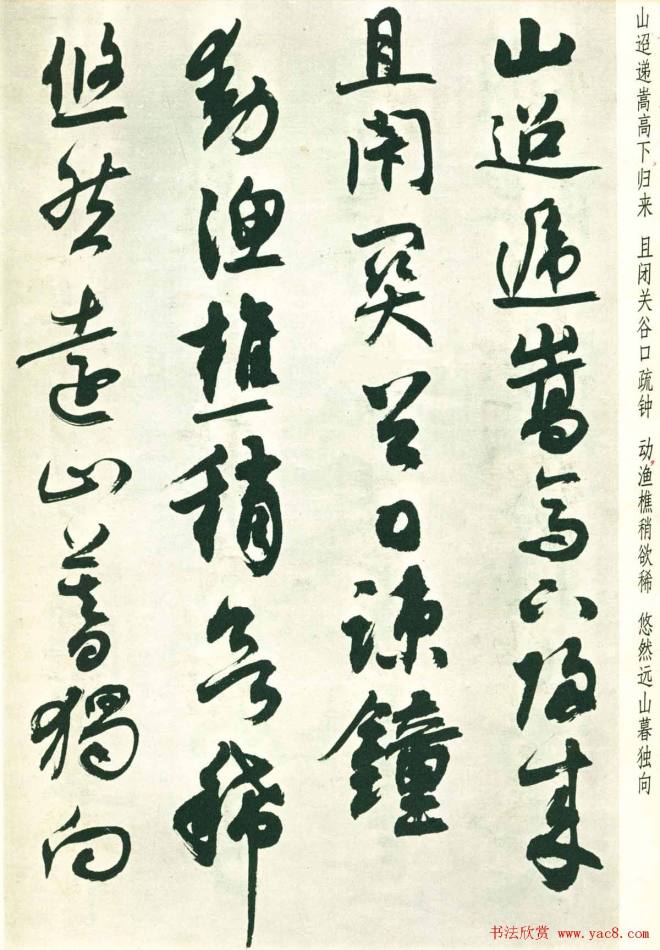 山迢遞嵩高下歸来
且閇関谷口疎鐘
動漁樵稍欲稀
悠然遠山暮獨向
山迢递嵩高下归来 且闭关谷口疏钟 动渔樵稍欲稀 悠然远山暮独向
书法欣赏 www.yac8.com